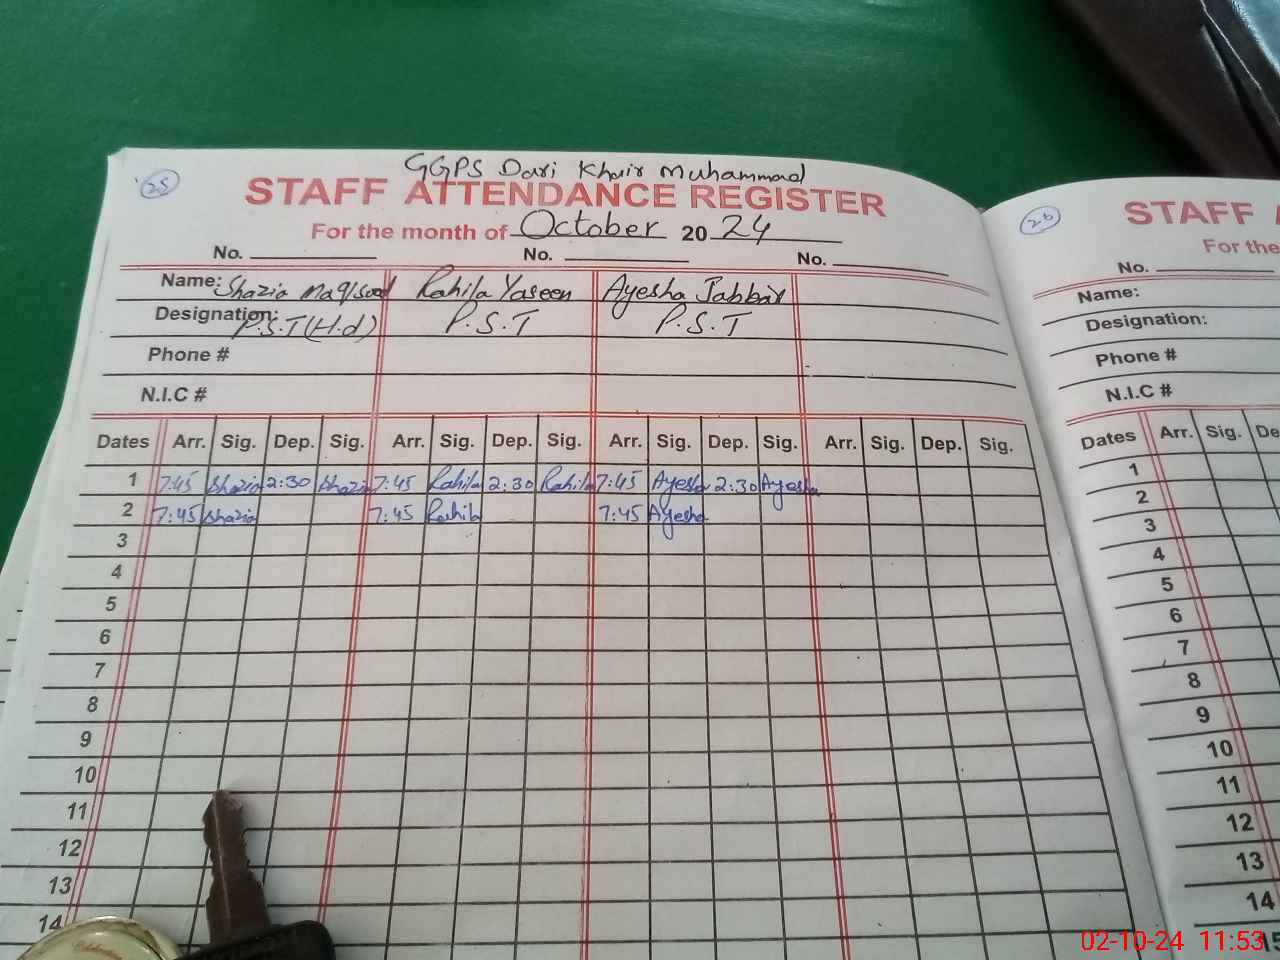 GGPS Dari Khair Muhammad
25
STAFF ATTENDANCE REGISTER
For the month of October 20 24
No. No. No.
Name: Shazia Maqsood Rahila Yaseen Ayesha Jabbar
Designation: P.S.T (H.d) P.S.T P.S.T
Phone #
N.I.C #
Dates Arr. Sig. Dep. Sig. Arr. Sig. Dep. Sig. Arr. Sig. Dep. Sig. Arr. Sig. Dep. Sig.
1 7:45 Shazia 2:30 Shazia 7:45 Rahila 2:30 Rahila 7:45 Ayesha 2:30 Ayesha
2 7:45 Shazia 7:45 Rahila 7:45 Ayesha
3
4
5
6
7
8
9
10
11
12
13
14
26
STAFF
For the
No.
Name:
Designation:
Phone #
N.I.C #
Dates Arr. Sig. De
1
2
3
4
5
6
7
8
9
10
11
12
13
14
15
02-10-24 11:53